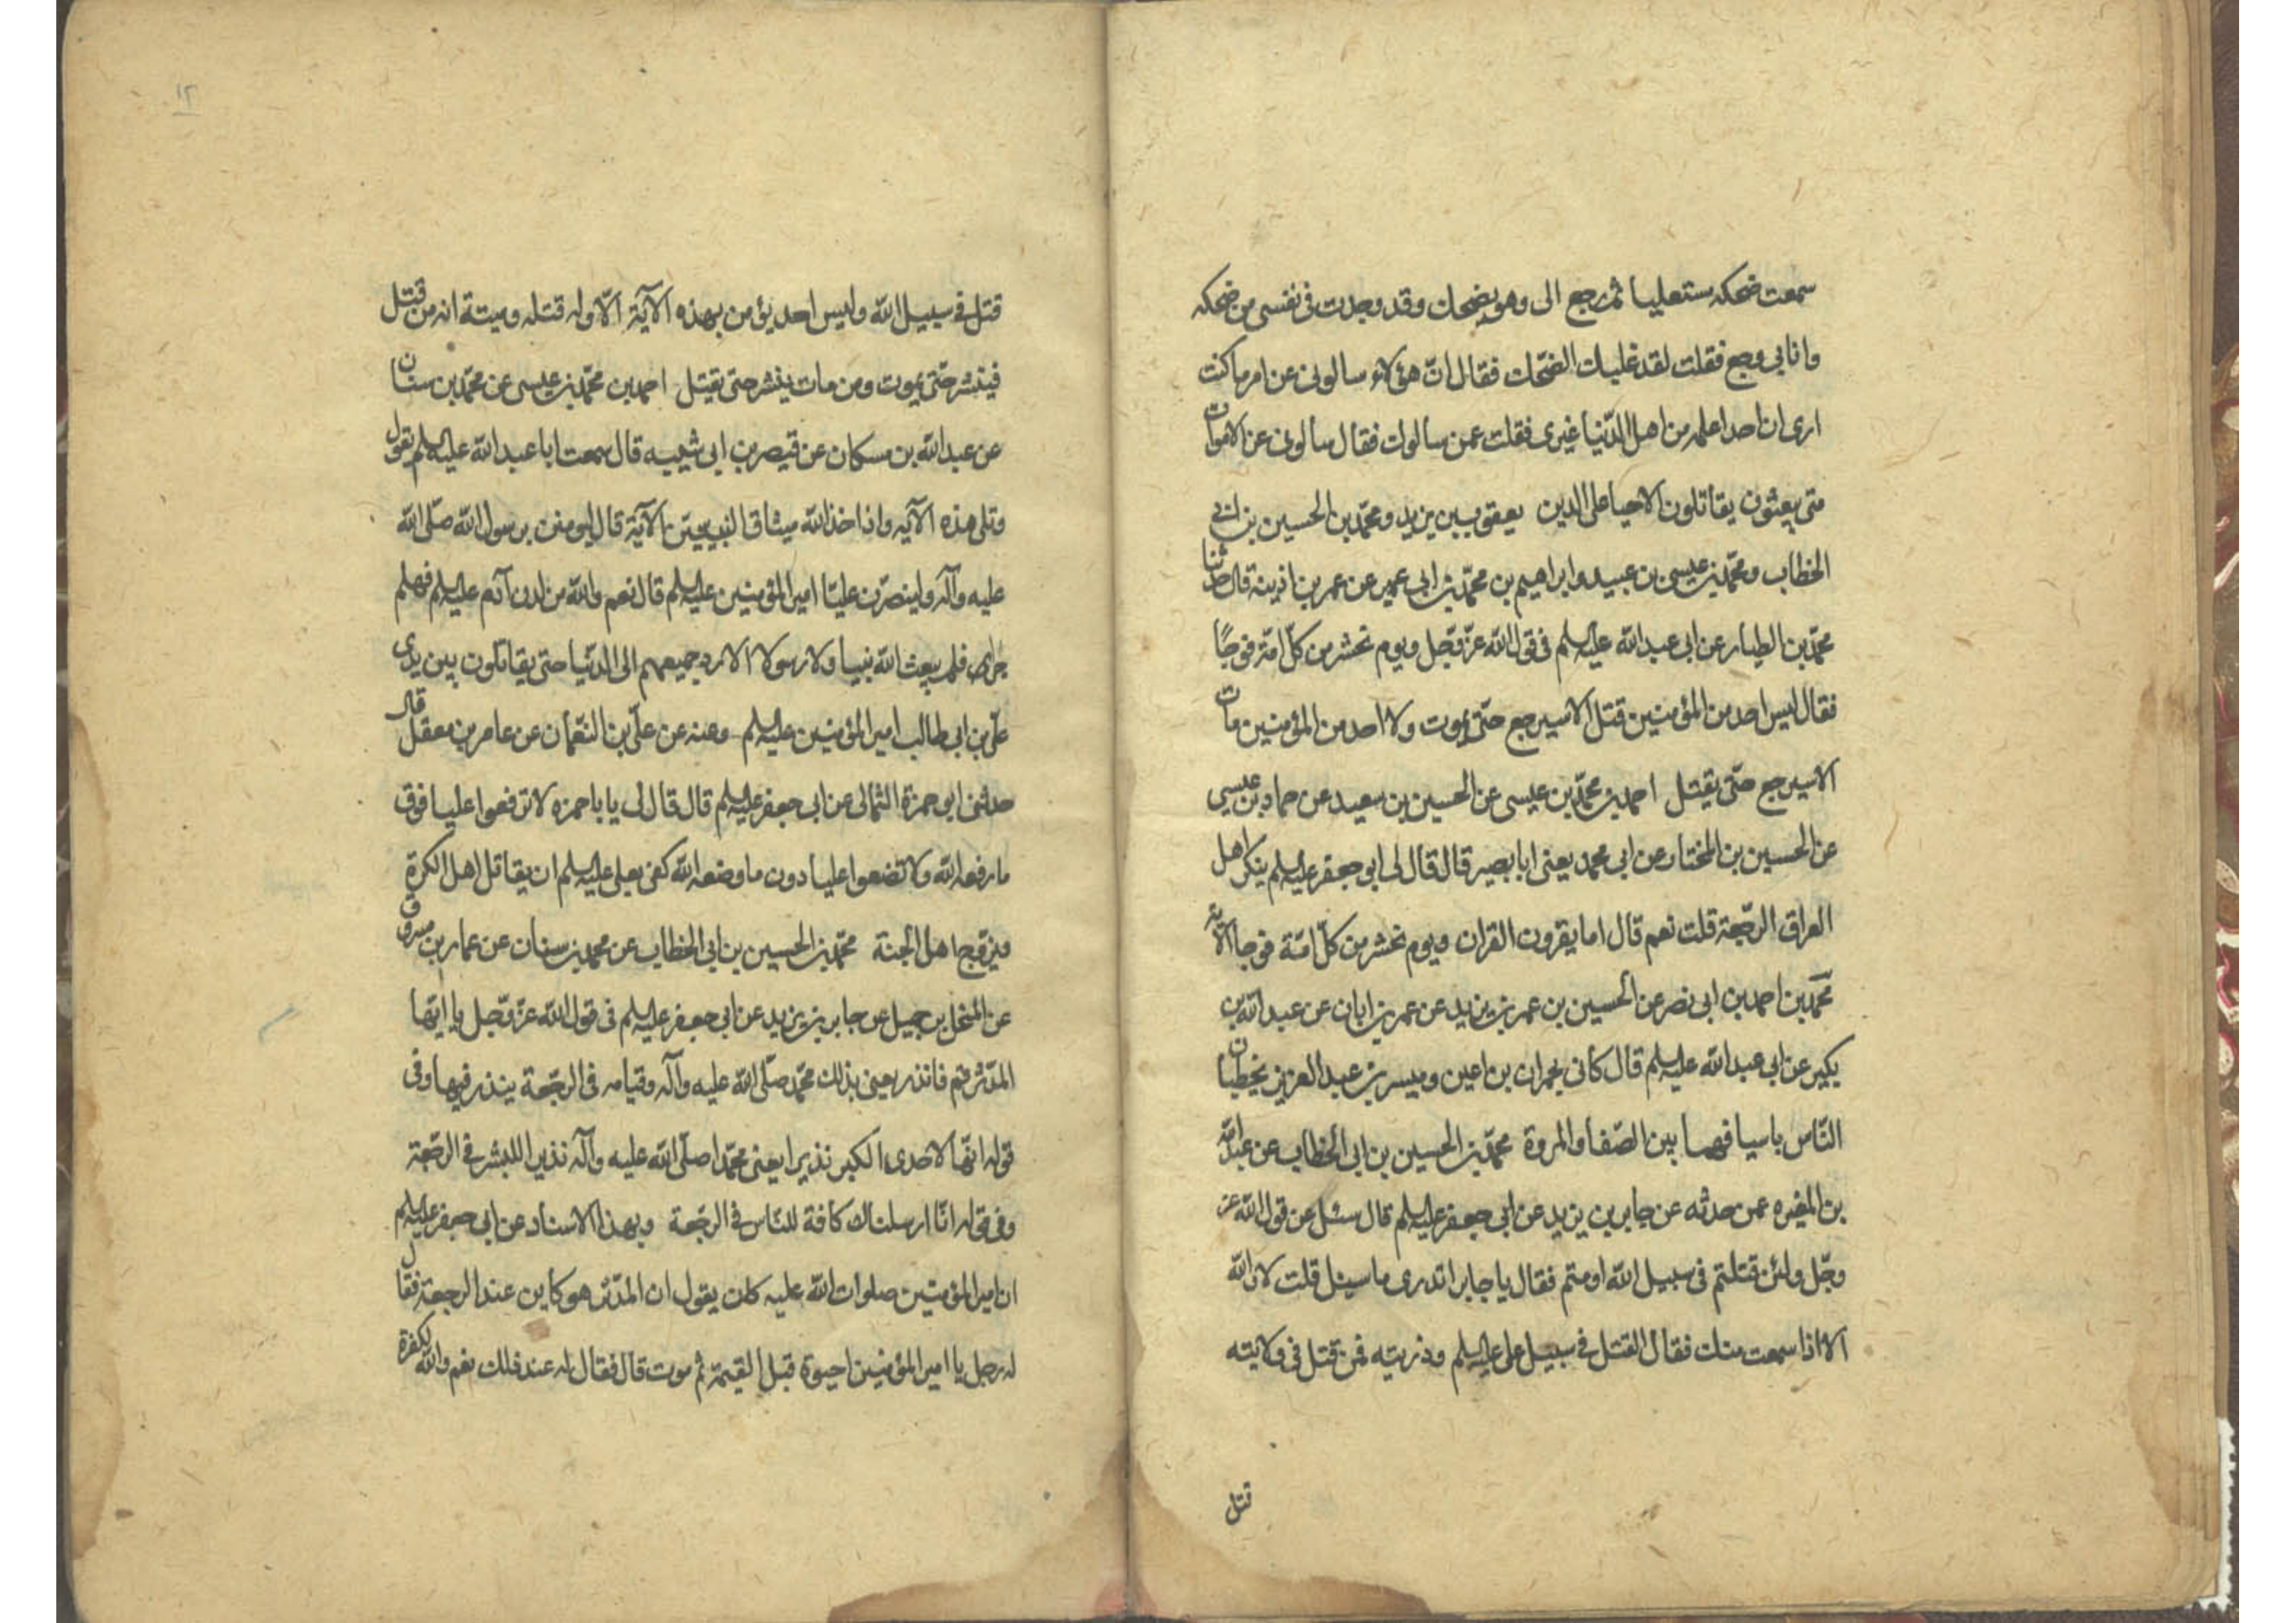 سمعت ضحكه مستعليا ثم رجع الى وهو يضحك وقد وجدت فى نفسى من ضحكه
وانا بى وجع فقلت لقد غلبك الضّحك فقال انّ هؤلاء سالونى عن امر ما كنت
ارى ان احدا علمه من اهل الدّنيا غيرى فقلت عمن سالوك فقال سألونى عن الاموات
متى يبعثون يقاتلون الاحيا على الدين يعقوب بن يزيد ومحمّد بن الحسين بن ابى
الخطاب ومحمّد بن عيسى بن عبيد وابراهيم بن محمّد بن ابى عمير عن عمر بن اذينه قال حدثنا
محمّد بن الطيار عن ابى عبد الله عليه السلم فى قول الله عزّ وجّل ويوم نحشر من كلّ امّة فوجًا
فقال ليس احد من المؤمنين قتل الا سيرجع حتّى يموت ولا احد من المؤمنين مات
الا سيرجع حتّى يقتل احمد بن محمّد بن عيسى عن الحسين بن سعيد عن حماد بن عيسى
عن الحسين بن المختار عن ابى محمد يعنى ابا بصير قال قال لى ابو جعفر عليه السلم ينكر اهل
العراق الرجعة قلت نعم قال اما يقرون القران ويوم نحشر من كلّ امّة فوجا الآية
محمّد بن احمد بن ابى نصر عن الحسين بن عمر بن يزيد عن عمر بن ابان عن عبد الله بن
بكير عن ابى عبد الله عليه السلم قال كأنى بحمران بن اعين وميسر بن عبد العزيز يخطبان
النّاس باسيافهما بين الصّفا والمروة محمّد بن الحسين بن ابى الخطاب عن عبد الله
بن المغيره عمن حدثه عن جابر بن يزيد عن ابى جعفر عليه السلم قال سئل عن قول الله عز
وجّل ولئن قتلتم فى سبيل الله او متم فقال يا جابر اتدرى ما سبيل قلت لا والله
الا اذا سمعت منك فقال القتل فى سبيل على عليه السلم وذريته فمن قتل فى ولايته
قتل
١٢
قتل فى سبيل الله وليس احد يؤمن بهذه الآية الّا وله قتله وميتة انه من قتل
فينشر حتّى يموت ومن مات ينشر حتى يقتل احمد بن محمّد بن عيسى عن محمّد بن سنان
عن عبد الله بن مسكان عن قيصر بن ابى شيبه قال سمعت ابا عبد الله عليه السلم يقول
وتلى هذه الآيه واذا خذ الله ميثاق النبيين الآية قال ليومنن برسول الله صلّى الله
عليه وآله ولينصرّن عليّا امير المؤمنين عليه السلم قال نعم والله من لدن آدم عليه السلم فهلم
جرا فلم يبعث الله نبيا ولا رسولا الا رد جميعهم الى الدنيا حتى يقاتلون بين يدى
علّى بن ابى طالب امير المؤمنين عليه السلم وعنه عن علىّ بن النعّمان عن عامر بن معقل قال
حدثنى ابو حمزة الثمالى عن ابى جعفر عليه السلم قال قال لى يا با حمزه لا ترفعوا عليا فوق
ما رفعه الله ولا تضعوا عليا دون ما وضعه الله كفى بعلى عليه السلم ان يقاتل اهل الكرة
ويزوّج اهل الجنة محمّد بن الحسين بن ابى الخطاب عن محمد بن سنان عن عمار بن مسروق
عن المنخل بن جميل عن جابر بن يزيد عن ابى جعفر عليه السلم فى قول الله عزّ وجّل يا ايّها
المدّثر قم فانذر يعنى بذلك محمّد صلّى الله عليه وآله وقيامه فى الرجّعة ينذر فيها وفى
قوله انّها لاحدى الكبر نذيرا يعنى محمّدا صلّى الله عليه وآله نذيرا للبشر فى الرجّعة
وفى قوله انّا ارسلناك كافة للنّاس فى الرجّعة وبهذا الاسناد عن ابى جعفر عليه السلم
ان امير المؤمنين صلوات الله عليه كان يقول ان المدّثر هو كاين عند الرجعة فقال
له رجل يا امير المؤمنين احيوة قبل القيمة ثم موت قال فقال له عند ذلك نعم والله لكفرة